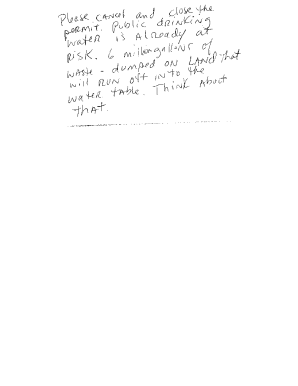 Please cancel and close the
permit. Public drinking
water is Already at
Risk. 6 million gallons of
waste - dumped on Land that
will Run off into the
water table. Think About
that.